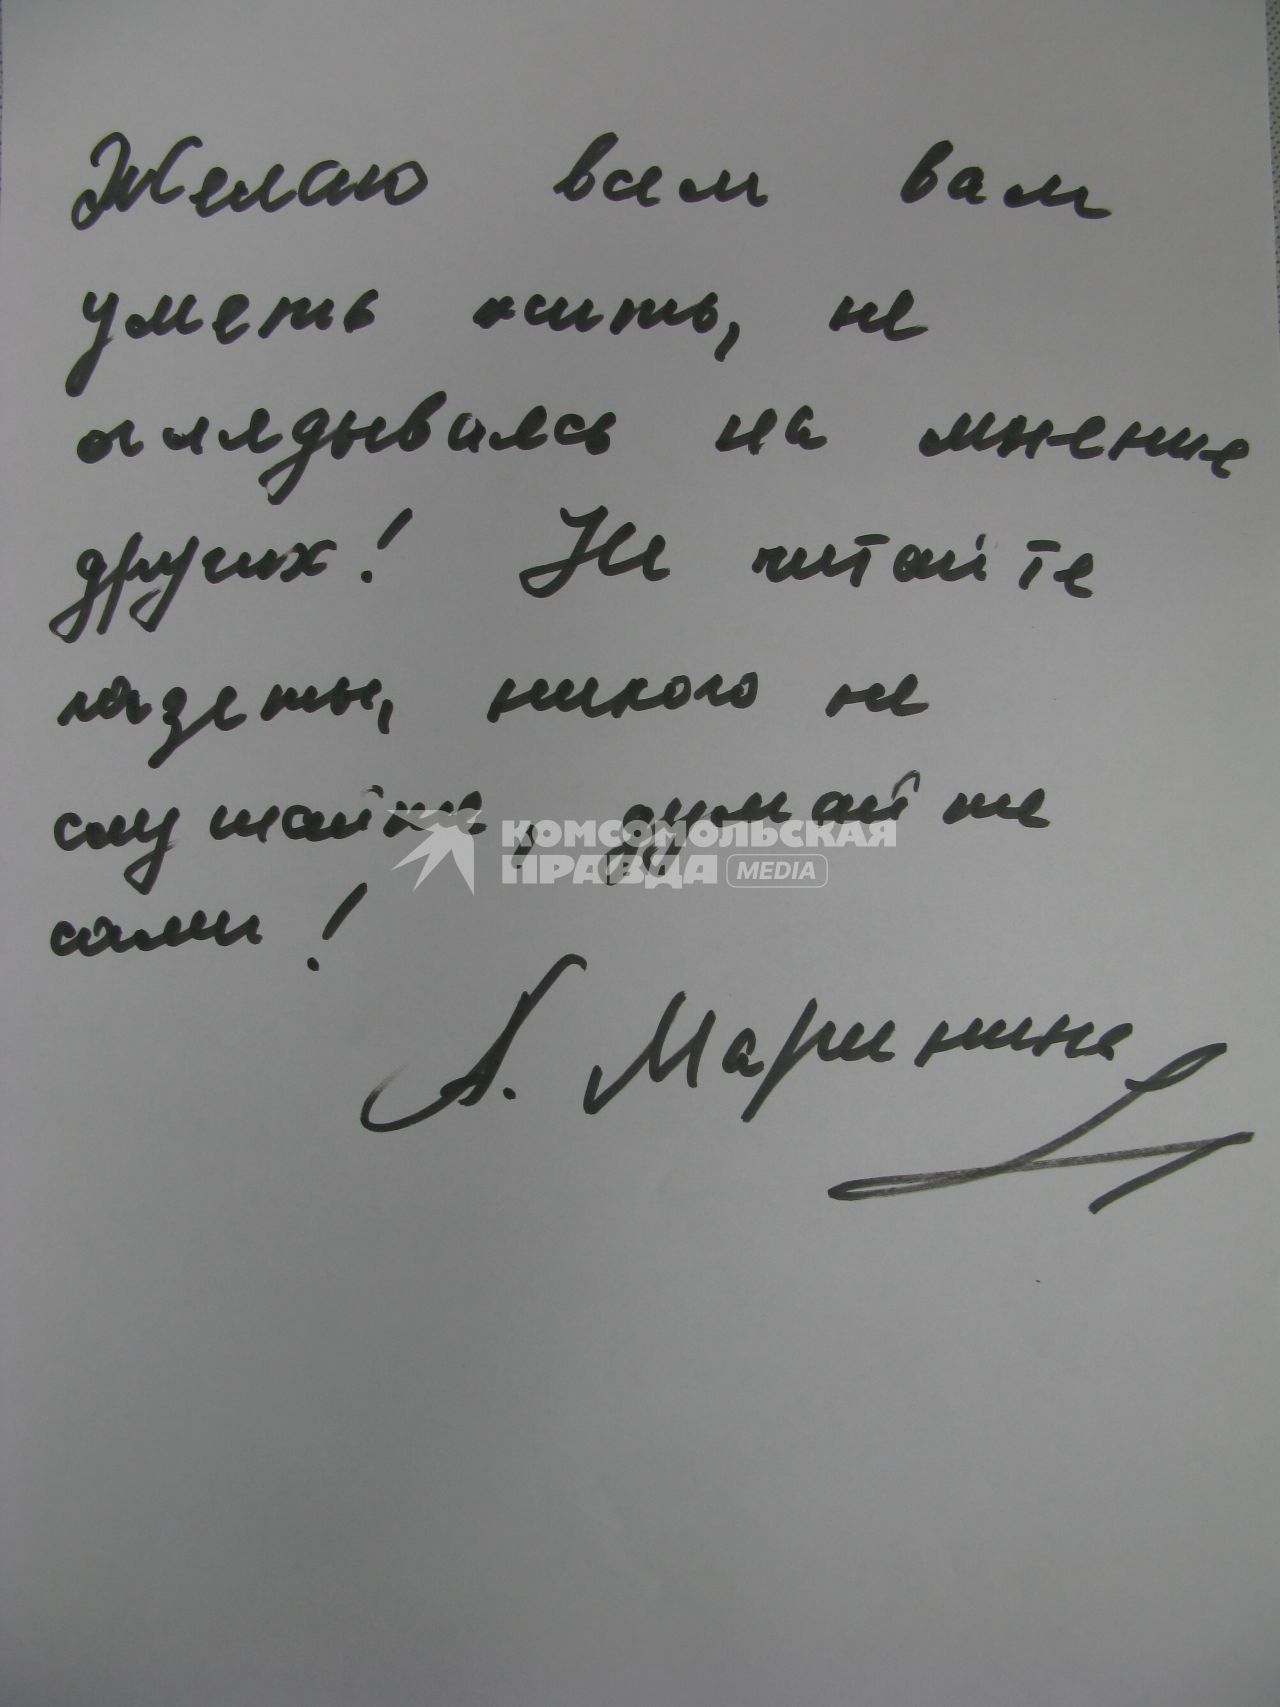 Желаю всем вам
уметь жить, не
оглядываясь на мнение
других! Не читайте
газеты, никого не
слушайте, думайте
КОМСОМОЛЬСКАЯ
ПРАВДА MEDIA
сами!
А. Маринина